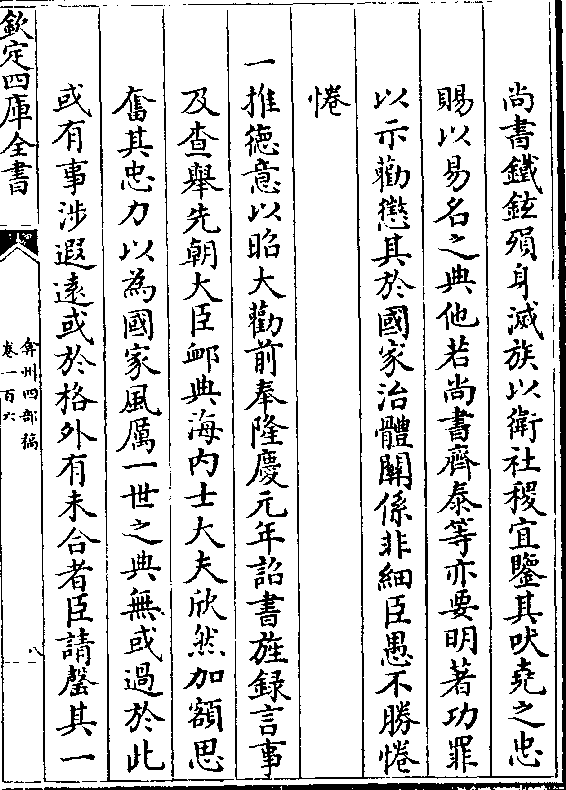 尚書鐵鉉殞身滅族以衛社稷宜鑒其吠堯之忠
賜以易名之典他若尚書齊泰等亦要明著功罪
以示勸懲其於國家治體關係非細臣愚不勝惓
惓
一推德意以昭大勸前奉隆慶元年詔書旌録言事
及查舉先朝大臣衈典海内士大夫欣然加額思
奮其忠力以為國家風厲一世之典無或過於此
或有事涉遐遠或於格外有未合者臣請罄其一
欽定四庫全書
弇州四部稿
卷一百六
八